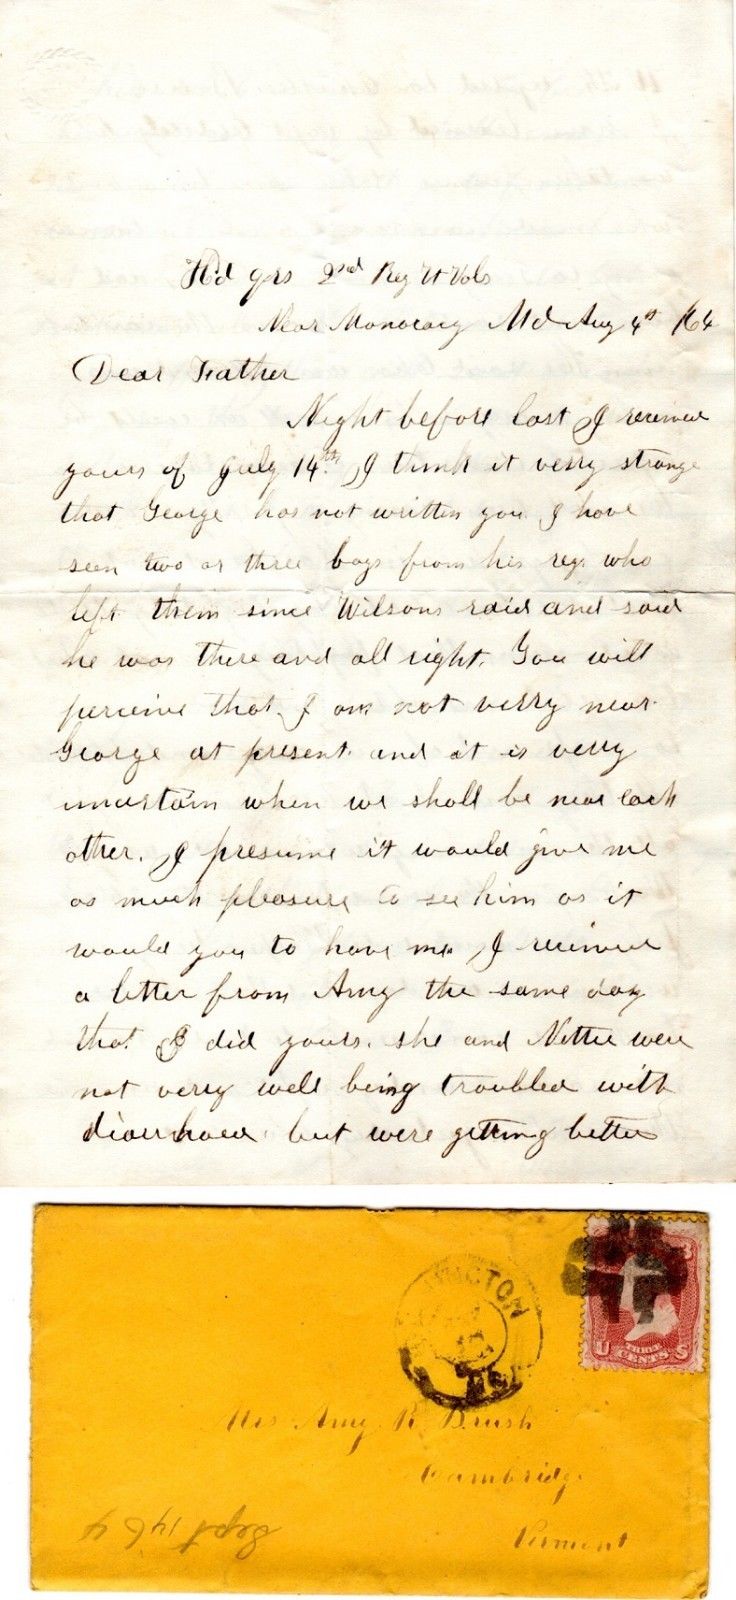 Hd qrs 2nd Reg Vt Vols
Near Monocacy Md Aug 4th /64
Dear Father
Night before last I received
yours of July 14th. I think it verry strange
that George has not written you I have
seen two or three boys from his regt who
left them since Wilsons raid and said
he was there and all right. You will
perceive that I am not verry near
George at present and it is verry
uncertain when we shall be near each
other. I presume it would give me
as much pleasure to see him as it
would you to have me. I received
a letter from Amy the same day
that I did yours. she and Nettie were
not verry well being troubled with
diarrhoea but were getting better
INGTON
THREE
U CENTS S
3
Mrs Amy R Brush
Cambridge
Vermont
Sept 14 64